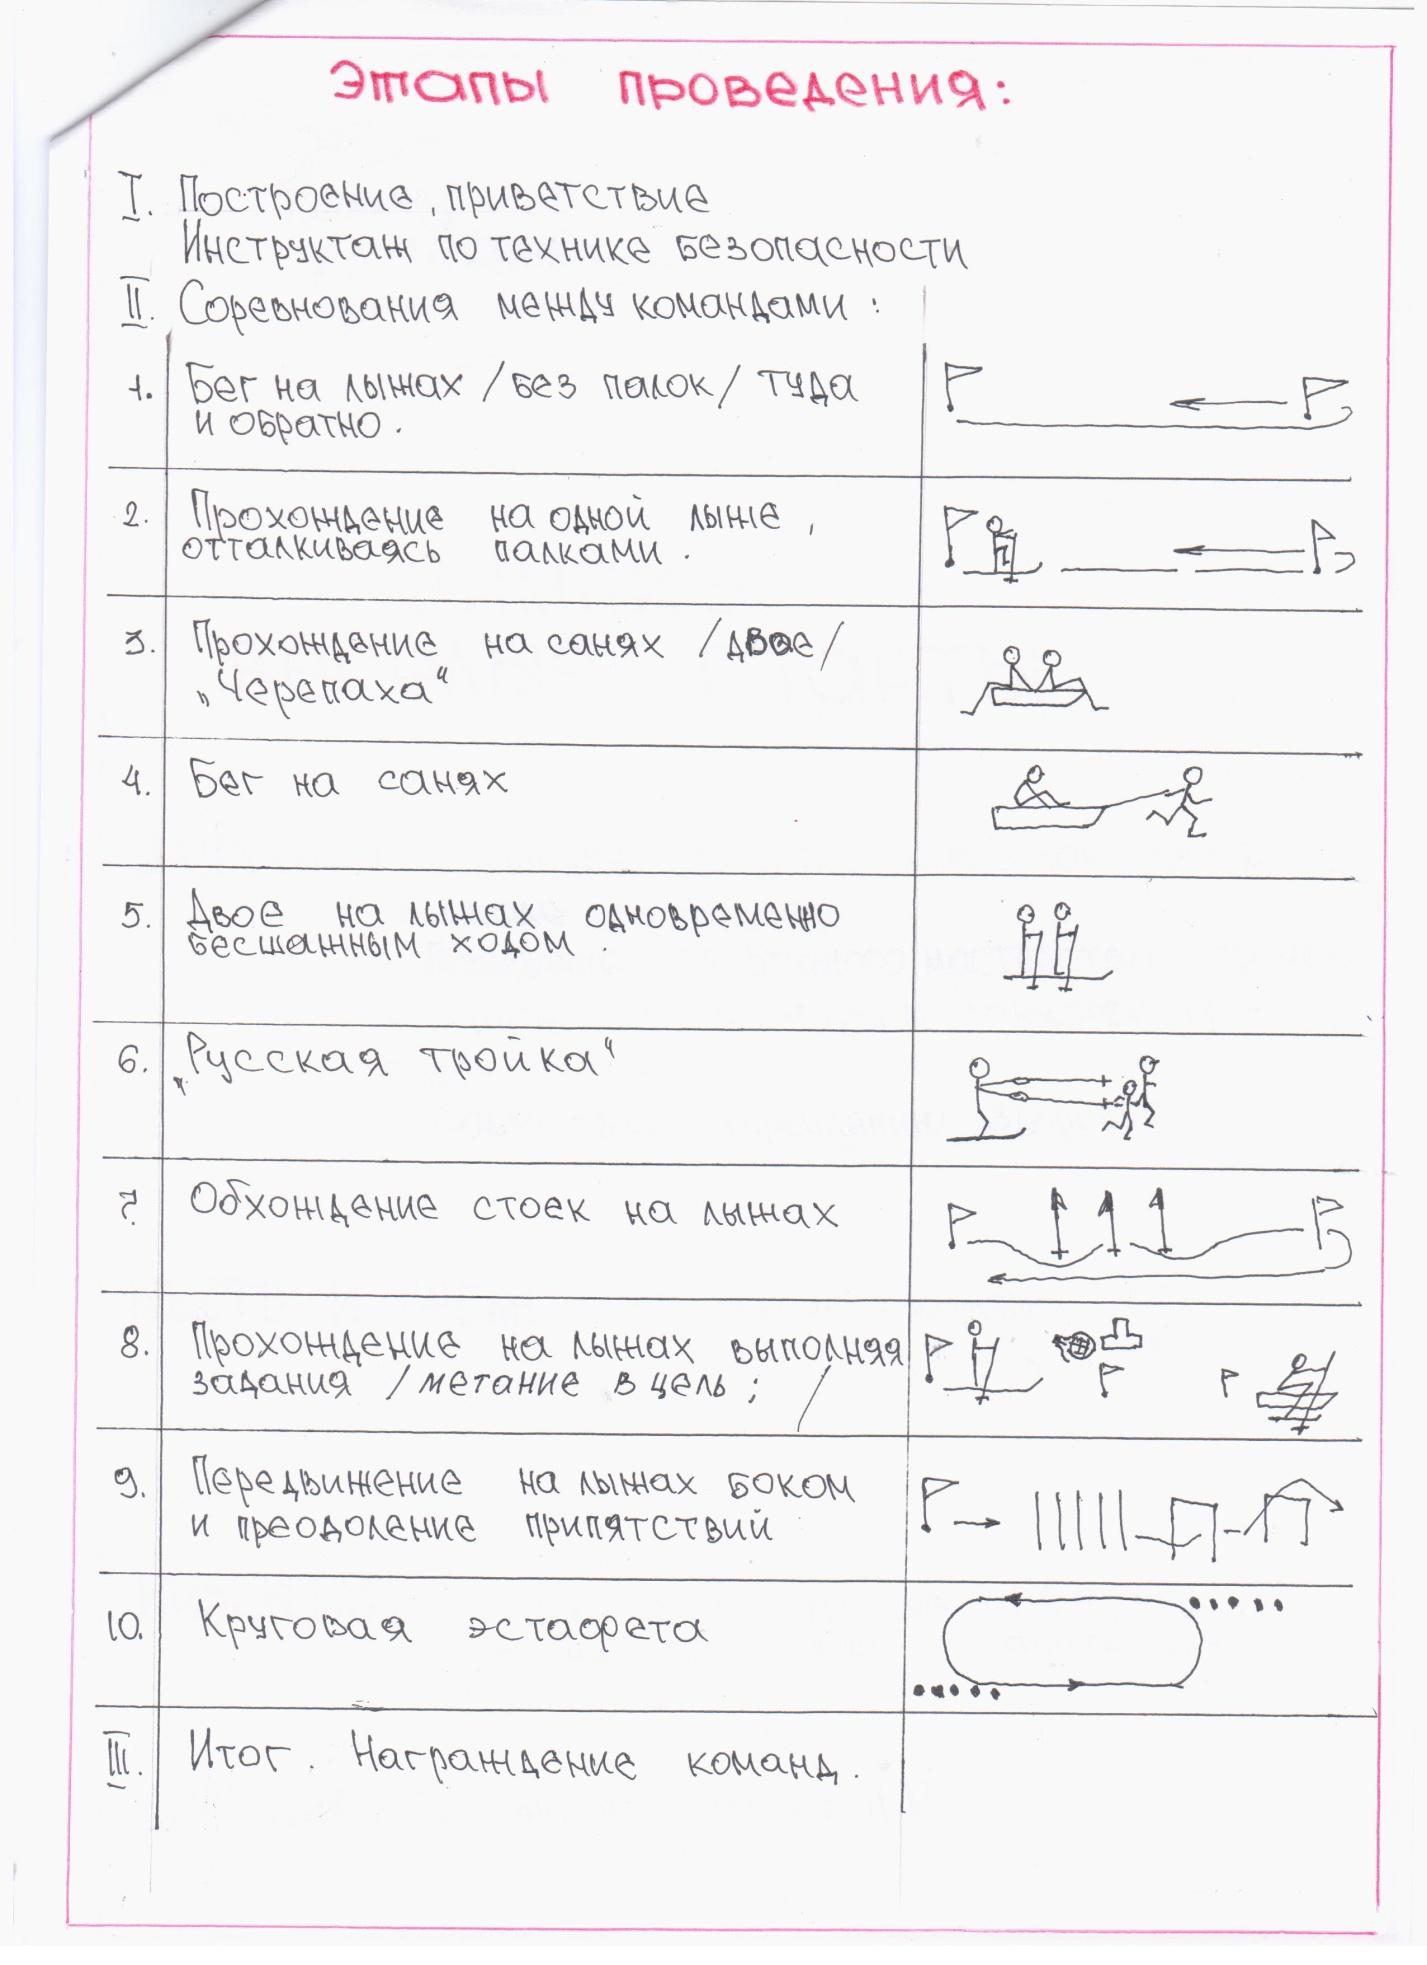 Этапы проведения:
I. Построение, приветствие
Инструктаж по технике безопасности
II. Соревнования между командами:
1. Бег на лыжах /без палок/ туда
и обратно.
2. Прохождение на одной лыже,
отталкиваясь палками.
3. Прохождение на санях /двое/
„Черепаха“
4. Бег на санях
5. Двое на лыжах одновременно
бесшажным ходом.
6. „Русская тройка“
7. Обхождение стоек на лыжах
8. Прохождение на лыжах выполняя
задания /метание в цель; /
9. Передвижение на лыжах боком
и преодоление припятствий
10. Круговая эстафета
III. Итог. Награждение команд.